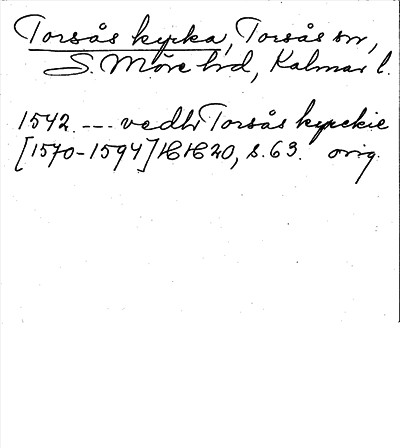 Torsås kyrka, Torsås sn,
S. Möre hd, Kalmar l.
1542. --- vedh Torsås kyrckie
[1570-1594] HH 20, s. 63. orig.